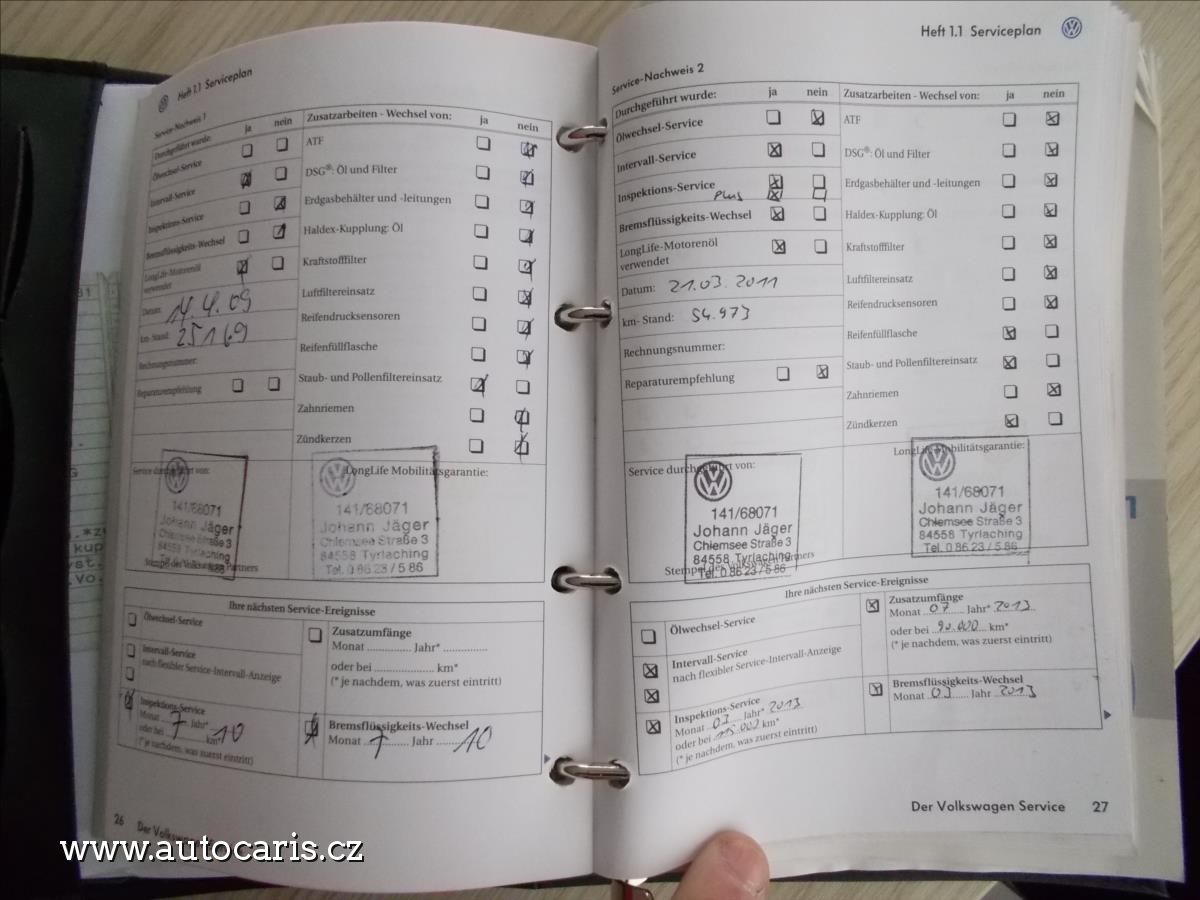 Heft 1.1 Serviceplan
Service-Nachweis 1
Durchgeführt wurde: ja nein
Ölwechsel-Service
Intervall-Service
Inspektions-Service
Bremsflüssigkeits-Wechsel
LongLife-Motorenöl
verwendet
Datum: 14.4.09
km- Stand: 25169
Rechnungsnummer:
Reparaturempfehlung
Zusatzarbeiten - Wechsel von: ja nein
ATF
DSG®: Öl und Filter
Erdgasbehälter und -leitungen
Haldex-Kupplung: Öl
Kraftstofffilter
Luftfiltereinsatz
Reifendrucksensoren
Reifenfüllflasche
Staub- und Pollenfiltereinsatz
Zahnriemen
Zündkerzen
Service durchgeführt von:
141/68071
Johann Jäger
Chiemsee Straße 3
84558 Tyrlaching
Stempel des Volkswagen Partners
LongLife Mobilitätsgarantie:
141/68071
Johann Jäger
Chiemsee Straße 3
84558 Tyrlaching
Tel. 0 86 23 / 5 86
Ihre nächsten Service-Ereignisse
Ölwechsel-Service
Intervall-Service
nach flexibler Service-Intervall-Anzeige
Inspektions-Service
Monat 7 Jahr*
oder bei 10 km*
(* je nachdem, was zuerst eintritt)
Zusatzumfänge
Monat ............ Jahr* ............
oder bei ................ km*
(* je nachdem, was zuerst eintritt)
Bremsflüssigkeits-Wechsel
Monat Jahr 10
26 Der
Heft 1.1 Serviceplan
Service-Nachweis 2
Durchgeführt wurde: ja nein
Ölwechsel-Service
Intervall-Service
Inspektions-Service
Plus
Bremsflüssigkeits-Wechsel
LongLife-Motorenöl
verwendet
Datum: 21.03.2011
km- Stand: 54.973
Rechnungsnummer:
Reparaturempfehlung
Zusatzarbeiten - Wechsel von: ja nein
ATF
DSG®: Öl und Filter
Erdgasbehälter und -leitungen
Haldex-Kupplung: Öl
Kraftstofffilter
Luftfiltereinsatz
Reifendrucksensoren
Reifenfüllflasche
Staub- und Pollenfiltereinsatz
Zahnriemen
Zündkerzen
Service durchgeführt von:
141/68071
Johann Jäger
Chiemsee Straße 3
84558 Tyrlaching
Tel. 0 86 23 / 5 86
Stempel des Volkswagen Partners
LongLife Mobilitätsgarantie:
141/68071
Johann Jäger
Chiemsee Straße 3
84558 Tyrlaching
Tel. 0 86 23 / 5 86
Ihre nächsten Service-Ereignisse
Ölwechsel-Service
Intervall-Service
nach flexibler Service-Intervall-Anzeige
Inspektions-Service
Monat 03 Jahr* 2013
oder bei 115.000 km*
(* je nachdem, was zuerst eintritt)
Zusatzumfänge
Monat 07 Jahr* 2013
oder bei 90.000 km*
(* je nachdem, was zuerst eintritt)
Bremsflüssigkeits-Wechsel
Monat 03 Jahr 2013
Der Volkswagen Service 27
www.autocaris.cz